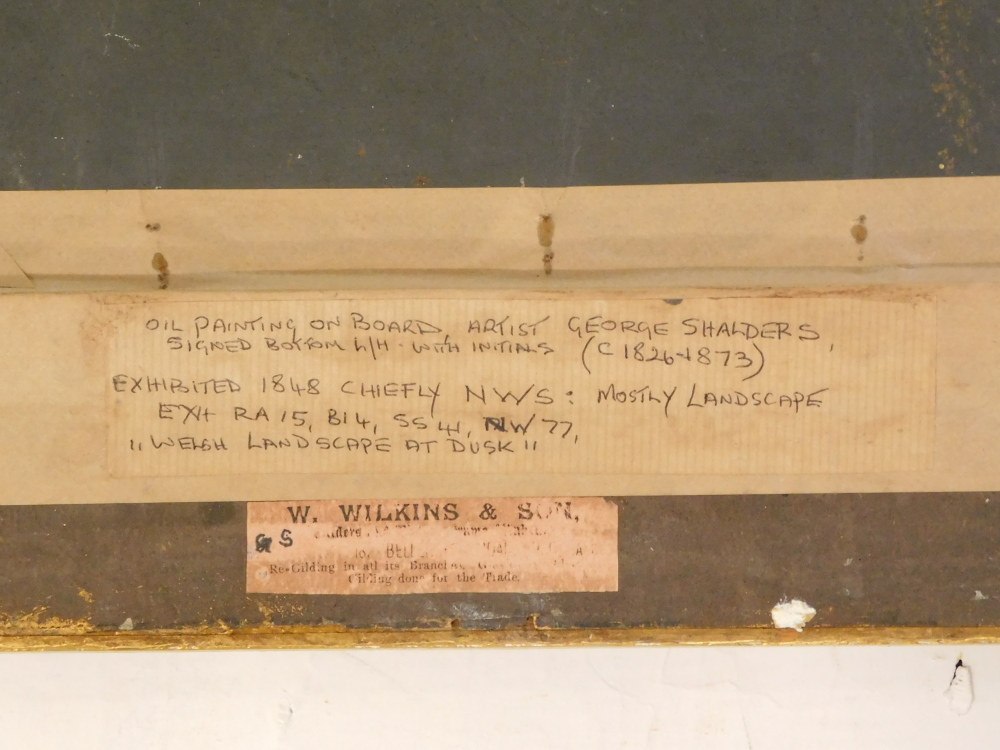 OIL PAINTING ON BOARD, ARTIST GEORGE SHALDERS,
SIGNED BOTTOM L/H. WITH INITIALS (C 1826-1873)
EXHIBITED 1848 CHIEFLY NWS: MOSTLY LANDSCAPE
EXH RA 15, BI 4, SS 41, NW 77,
"WELSH LANDSCAPE AT DUSK"
W. WILKINS & SON,
GS
Re-Gilding in all its Branches
Gilding done for the Trade.